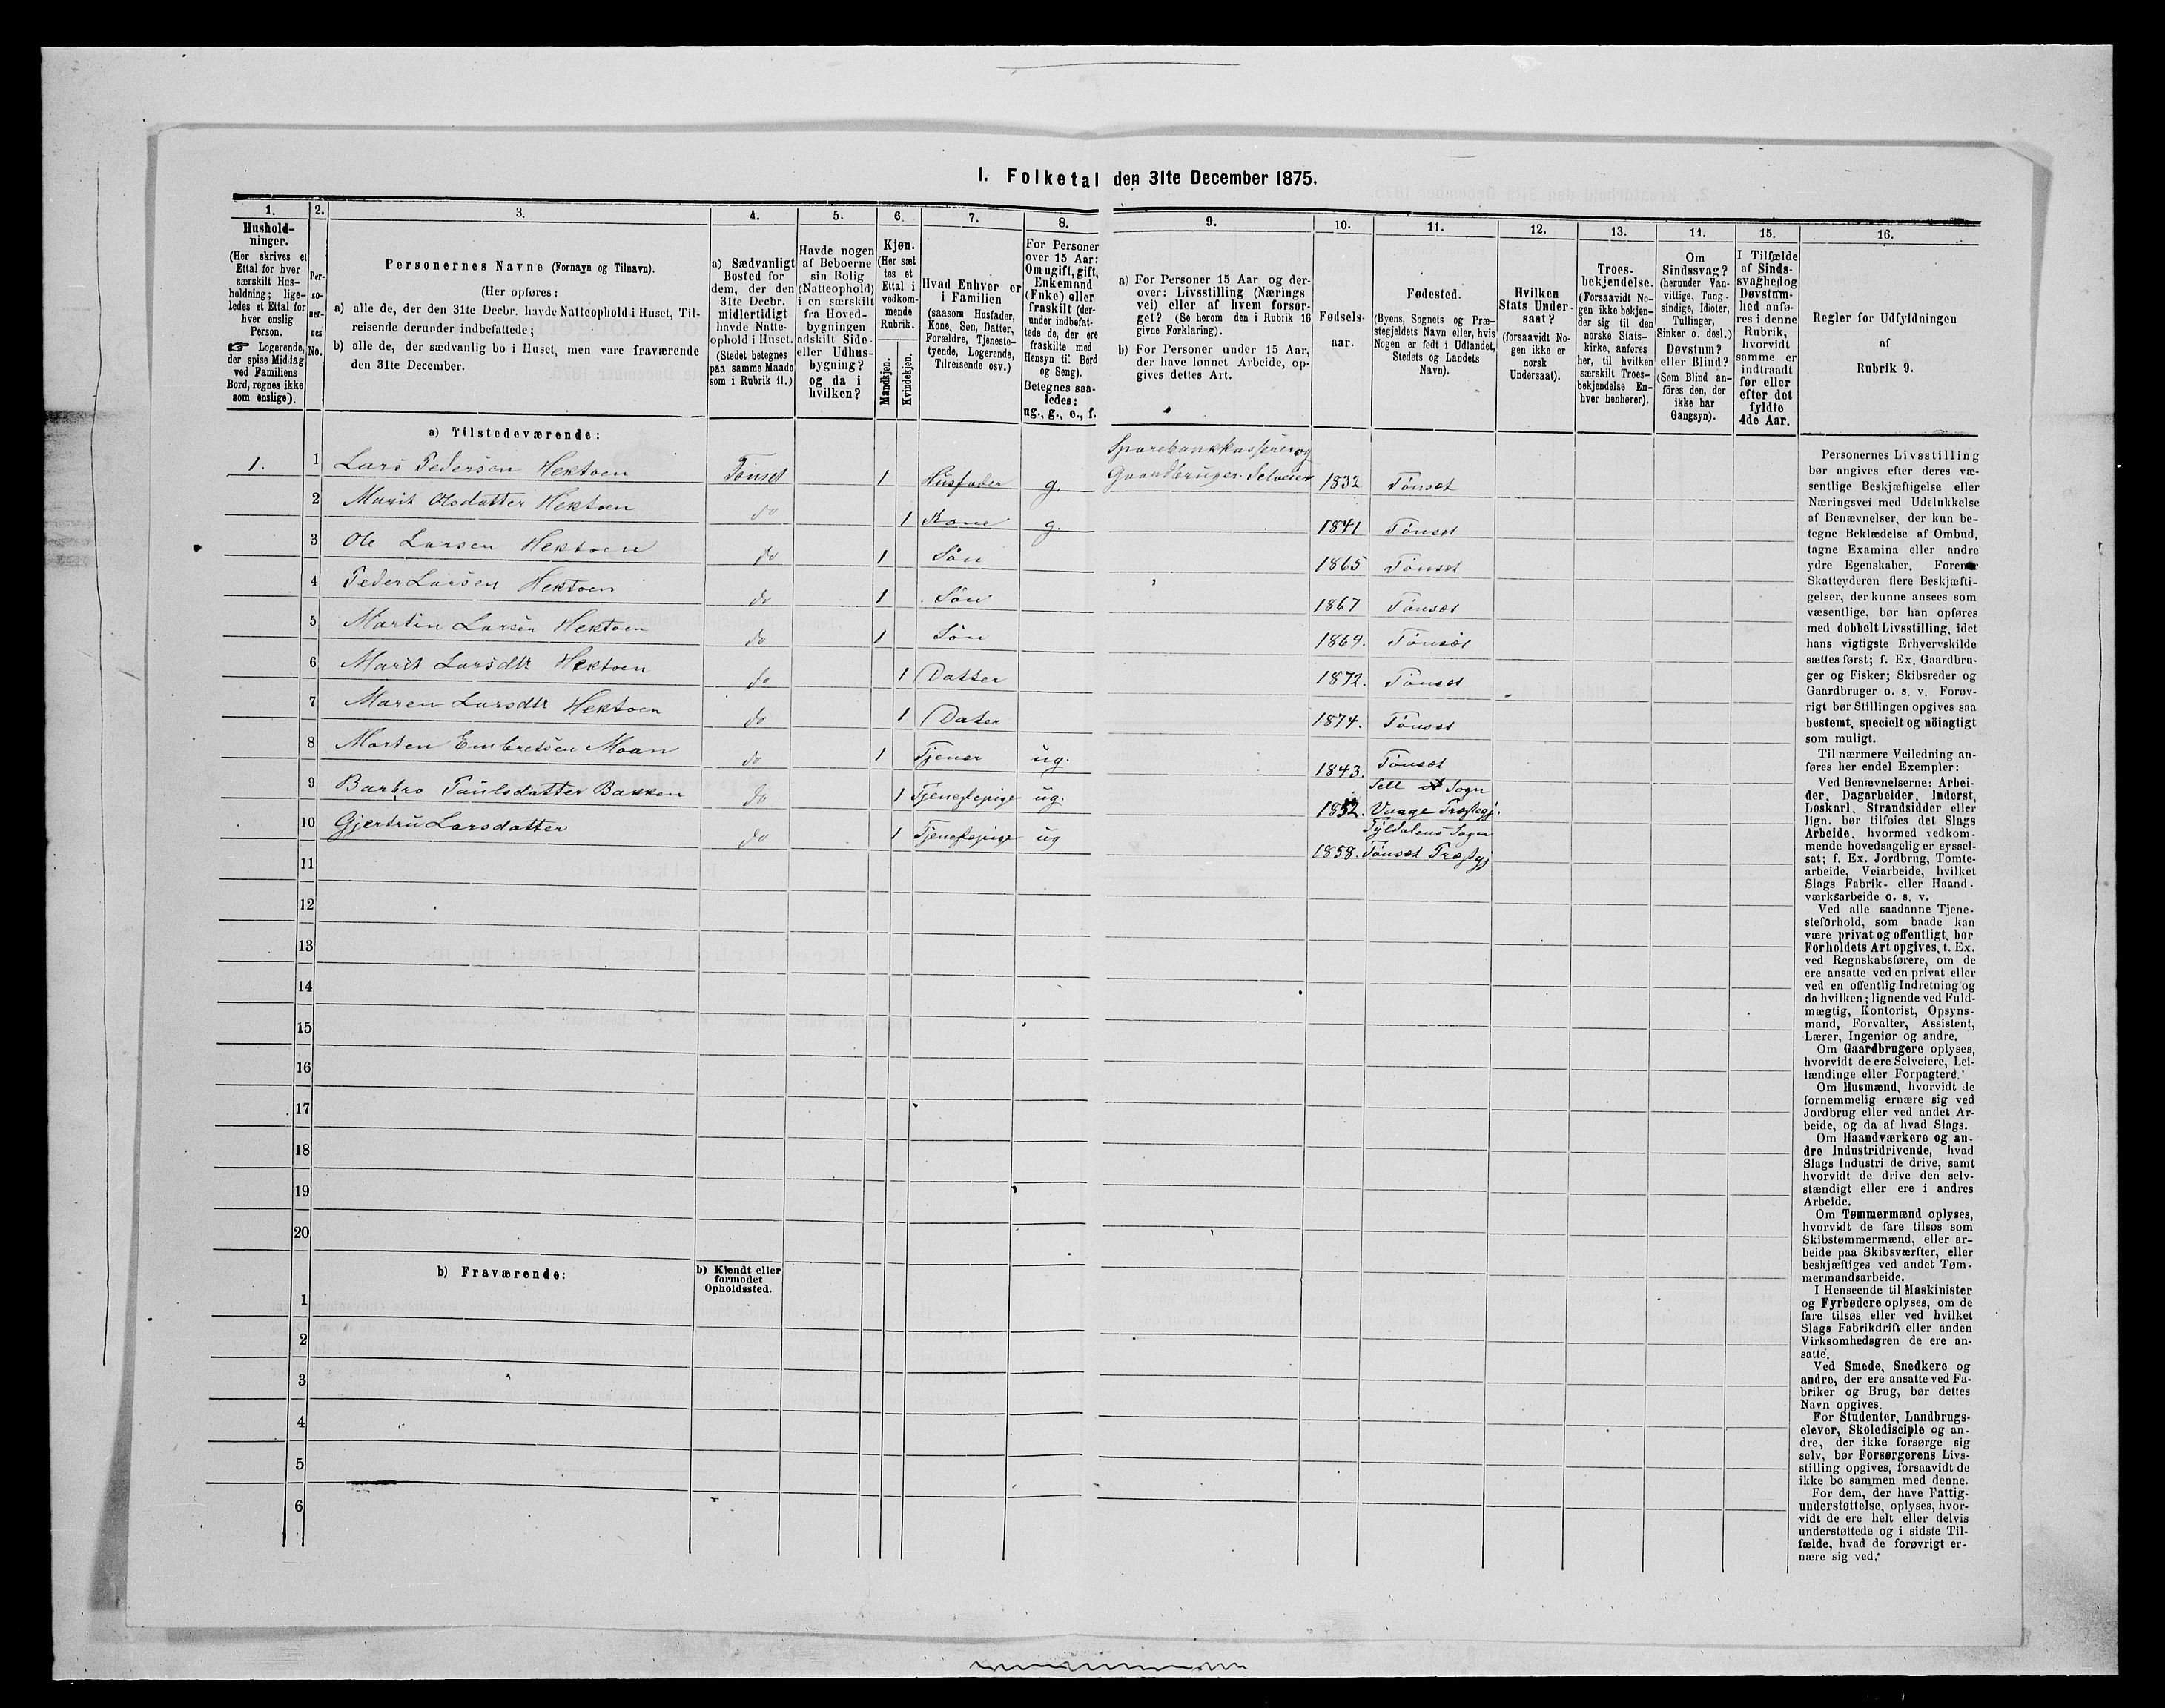 1. Folketal den 31te December 1875.
1.
2.
3.
4.
5.
6.
7.
8.
9.
10.
11.
12.
13.
14.
15.
16.
Hushold-
ninger.
(Her skrives et
Ettal for hver
særskilt Hus-
holdning; lige-
ledes et Ettal for
hver enslig
Person.
☞ Logerende,
der spise Middag
ved Familiens
Bord, regnes ikke
som enslige).
Per-
so-
ner-
nes
No.
Personernes Navne (Fornavn og Tilnavn).
(Her opføres:
a) alle de, der den 31te Decbr. havde Natteophold i Huset, Til-
reisende derunder indbefattede;
b) alle de, der sædvanlig bo i Huset, men vare fraværende
den 31te December.
a) Sædvanligt
Bosted for
dem, der den
31te Decbr.
midlertidigt
havde Natte-
ophold i Huset.
(Stedet betegnes
paa samme Maade
som i Rubrik 11.)
Havde nogen
af Beboerne
sin Bolig
(Natteophold)
i en særskilt
fra Hoved-
bygningen
adskilt Side-
eller Udhus-
bygning?
og da i
hvilken?
Kjøn.
(Her sæt
tes et
Ettal i
vedkom-
mende
Rubrik.
Mandkjøn.
Kvindekjøn.
Hvad Enhver er
i Familien
(saasom Husfader,
Kone, Søn, Datter,
Forældre, Tjeneste-
tyende, Logerende,
Tilreisende osv.)
For Personer
over 15 Aar:
Om ugift, gift,
Enkemand
(Enke) eller
fraskilt (der-
under indbefat-
tede de, der ere
fraskilte med
Hensyn til Bord
og Seng).
Betegnes saa-
ledes:
ug., g., e., f.
a) For Personer 15 Aar og der-
over: Livsstilling (Nærings
vei) eller af hvem forsør-
get? (Se herom den i Rubrik 16
givne Forklaring).
b) For Personer under 15 Aar,
der have lønnet Arbeide, op-
gives dettes Art.
Fødsels-
aar.
Fødested.
(Byens, Sognets og Præ-
stegjeldets Navn eller, hvis
Nogen er født i Udlandet,
Stedets og Landets
Navn).
Hvilken
Stats Under-
saat?
(forsaavidt No-
gen ikke er
norsk
Undersaat).
Troes-
bekjendelse.
(Forsaavidt No-
gen ikke bekjen-
der sig til den
norske Stats-
kirke, anføres
her, til hvilken
særskilt Troes-
bekjendelse En-
hver henhører).
Om
Sindssvag?
(herunder Van-
vittige, Tung-
sindige, Idioter,
Tullinger,
Sinker o. desl.)
Døvstum?
eller Blind?
(Som Blind an-
føres den, der
ikke har
Gangsyn).
I Tilfælde
af Sinds-
svaghed og
Døvstum-
hed anfø-
res i denne
Rubrik,
hvorvidt
samme er
indtraadt
før eller
efter det
fyldte
4de Aar.
Regler for Udfyldningen
af
Rubrik 9.
a) Tilstedeværende:
Sparebankkasserer og
1. 1 Lars Pedersen Hektoen Tønset 1 Husfader g. Gaardbruger Selveier 1832 Tønset
2 Marit Olsdatter Hektoen do 1 Kone g. 1841 Tønset
3 Ole Larsen Hektoen do 1 Søn 1865 Tønset
4 Peder Larsen Hektoen do 1 Søn 1867 Tønset
5 Martin Larsen Hektoen do 1 Søn 1869. Tønset
6 Marit Larsdtr Hektoen do 1 Datter 1872. Tønset
7 Maren Larsdtr Hektoen do 1 Dater 1874. Tønset
8 Morten Embretsen Moan do 1 Tjener ug. 1843. Tønset
Sell Sogn
9 Barbro Paulsdatter Bakken do 1 Tjenestepige ug. 1852. Vaage Præstegj.
Tyldalens Sogn
10 Gjertru Larsdatter do 1 Tjenestepige ug 1858. Tønset Præstgj
11
12
13
14
15
16
17
18
19
20
b) Fraværende:
b) Kjendt eller
formodet
Opholdssted.
1
2
3
4
5
6
Personernes Livsstilling
bør angives efter deres væ-
sentlige Beskjæftigelse eller
Næringsvei med Udelukkelse
af Benævnelser, der kun be-
tegne Beklædelse af Ombud,
tagne Examina eller andre
ydre Egenskaber. Forener
Skatteyderen flere Beskjæfti-
gelser, der kunne ansees som
væsentlige, bør han opføres
med dobbelt Livsstilling, idet
hans vigtigste Erhvervskilde
sættes først; f. Ex. Gaardbru-
ger og Fisker; Skibsreder og
Gaardbruger o. s. v. Forøv-
rigt bør Stillingen opgives saa
bestemt, specielt og nöiagtigt
som muligt.
Til nærmere Veiledning an-
føres her endel Exempler:
Ved Benævnelserne: Arbei-
der, Dagarbeider, Inderst,
Løskarl, Strandsidder eller
lign. bør tilføies det Slags
Arbeide, hvormed vedkom-
mende hovedsagelig er syssel-
sat; f. Ex. Jordbrug, Tomte-
arbeide, Veiarbeide, hvilket
Slags Fabrik- eller Haand-
værksarbeide o. s. v.
Ved alle saadanne Tjene-
steforhold, som baade kan
være privat og offentligt, bør
Forholdets Art opgives, t. Ex.
ved Regnskabsførere, om de
ere ansatte ved en privat eller
ved en offentlig Indretning og
da hvilken; lignende ved Fuld-
mægtig, Kontorist, Opsyns-
mand, Forvalter, Assistent,
Lærer, Ingeniør og andre.
Om Gaardbrugere oplyses,
hvorvidt de ere Selveiere, Lei-
lændinge eller Forpagtere.
Om Husmænd, hvorvidt de
fornemmelig ernære sig ved
Jordbrug eller ved andet Ar-
beide, og da af hvad Slags.
Om Haandværkere og an-
dre Industridrivende, hvad
Slags Industri de drive, samt
hvorvidt de drive den selv-
stændigt eller ere i andres
Arbeide.
Om Tømmermænd oplyses,
hvorvidt de fare tilsøs som
Skibstømmermænd, eller ar-
beide paa Skibsværfter, eller
beskjæftiges ved andet Tøm-
mermandsarbeide.
I Henseende til Maskinister
og Fyrbødere oplyses, om de
fare tilsøs eller ved hvilket
Slags Fabrikdrift eller anden
Virksomhedsgren de ere an-
satte.
Ved Smede, Snedkere og
andre, der ere ansatte ved Fa-
briker og Brug, bør dettes
Navn opgives.
For Studenter, Landbrugs-
elever, Skoledisciple og an-
dre, der ikke forsørge sig
selv, bør Forsørgerens Livs-
stilling opgives, forsaavidt de
ikke bo sammen med denne.
For dem, der have Fattig-
understøttelse, oplyses, hvor-
vidt de ere helt eller delvis
understøttede og i sidste Til-
fælde, hvad de forøvrigt er-
nære sig ved.